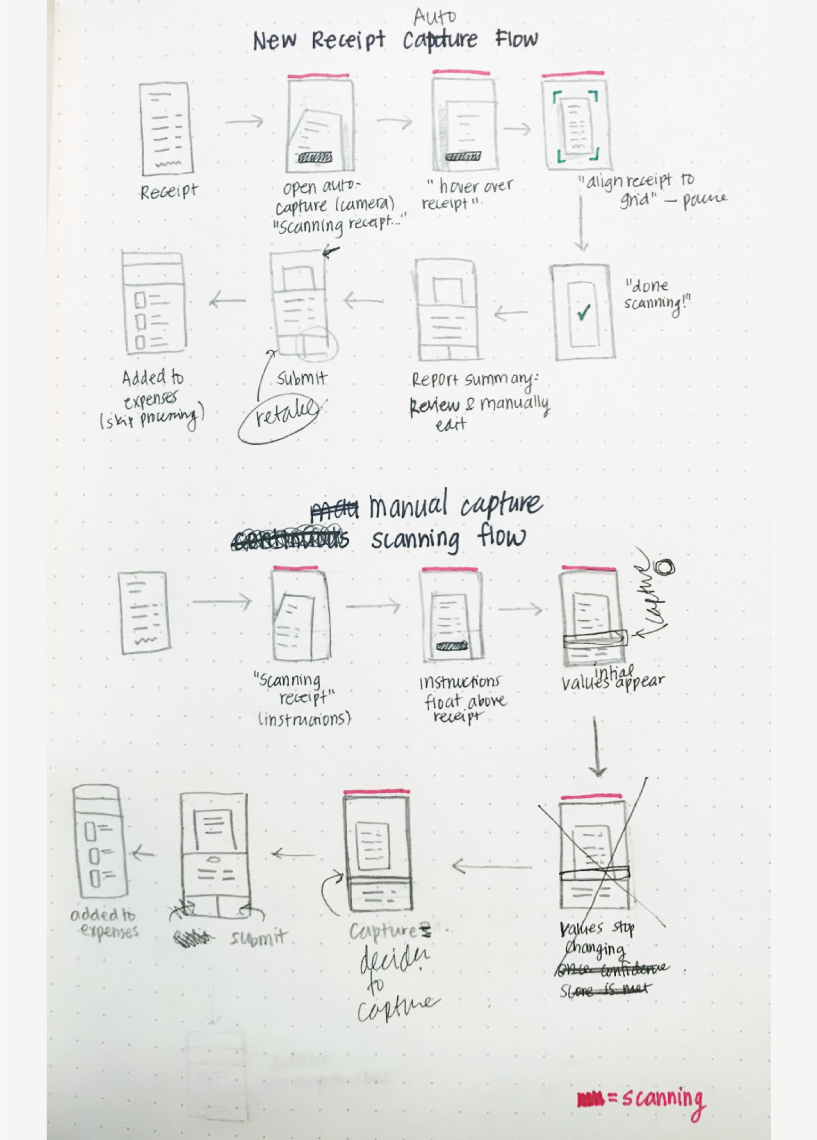 Auto
New Receipt Capture Flow
Receipt
open auto-
capture (camera)
"Scanning receipt..."
"hover over
receipt".
"align receipt to
grid" – pause
"done
scanning!"
Report summary:
Review & manually
edit
submit
retake
Added to
expenses
(skip processing)
mau manual capture
continuous scanning flow
"Scanning
receipt"
(instructions)
Instructions
float above
receipt
capture
initial
values appear
values stop
changing
once confidence
score is met
Capture
decider
to
capture
submit
added to
expenses
= scanning